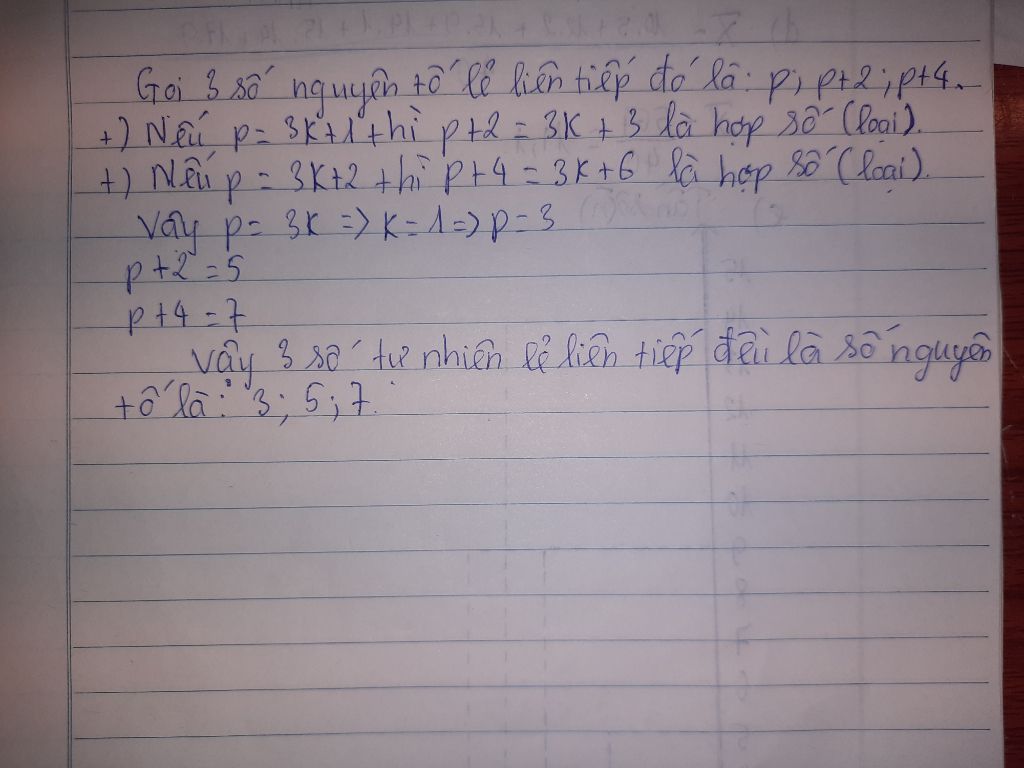 Gọi 3 số nguyên tố lẻ liên tiếp đó là: p; p+2; p+4.
+) Nếu p = 3k+1 thì p+2 = 3k+3 là hợp số (loại).
+) Nếu p = 3k+2 thì p+4 = 3k+6 là hợp số (loại).
Vậy p = 3k => k = 1 => p = 3
p+2 = 5
p+4 = 7
Vậy 3 số tự nhiên lẻ liên tiếp đều là số nguyên
tố là: 3; 5; 7.